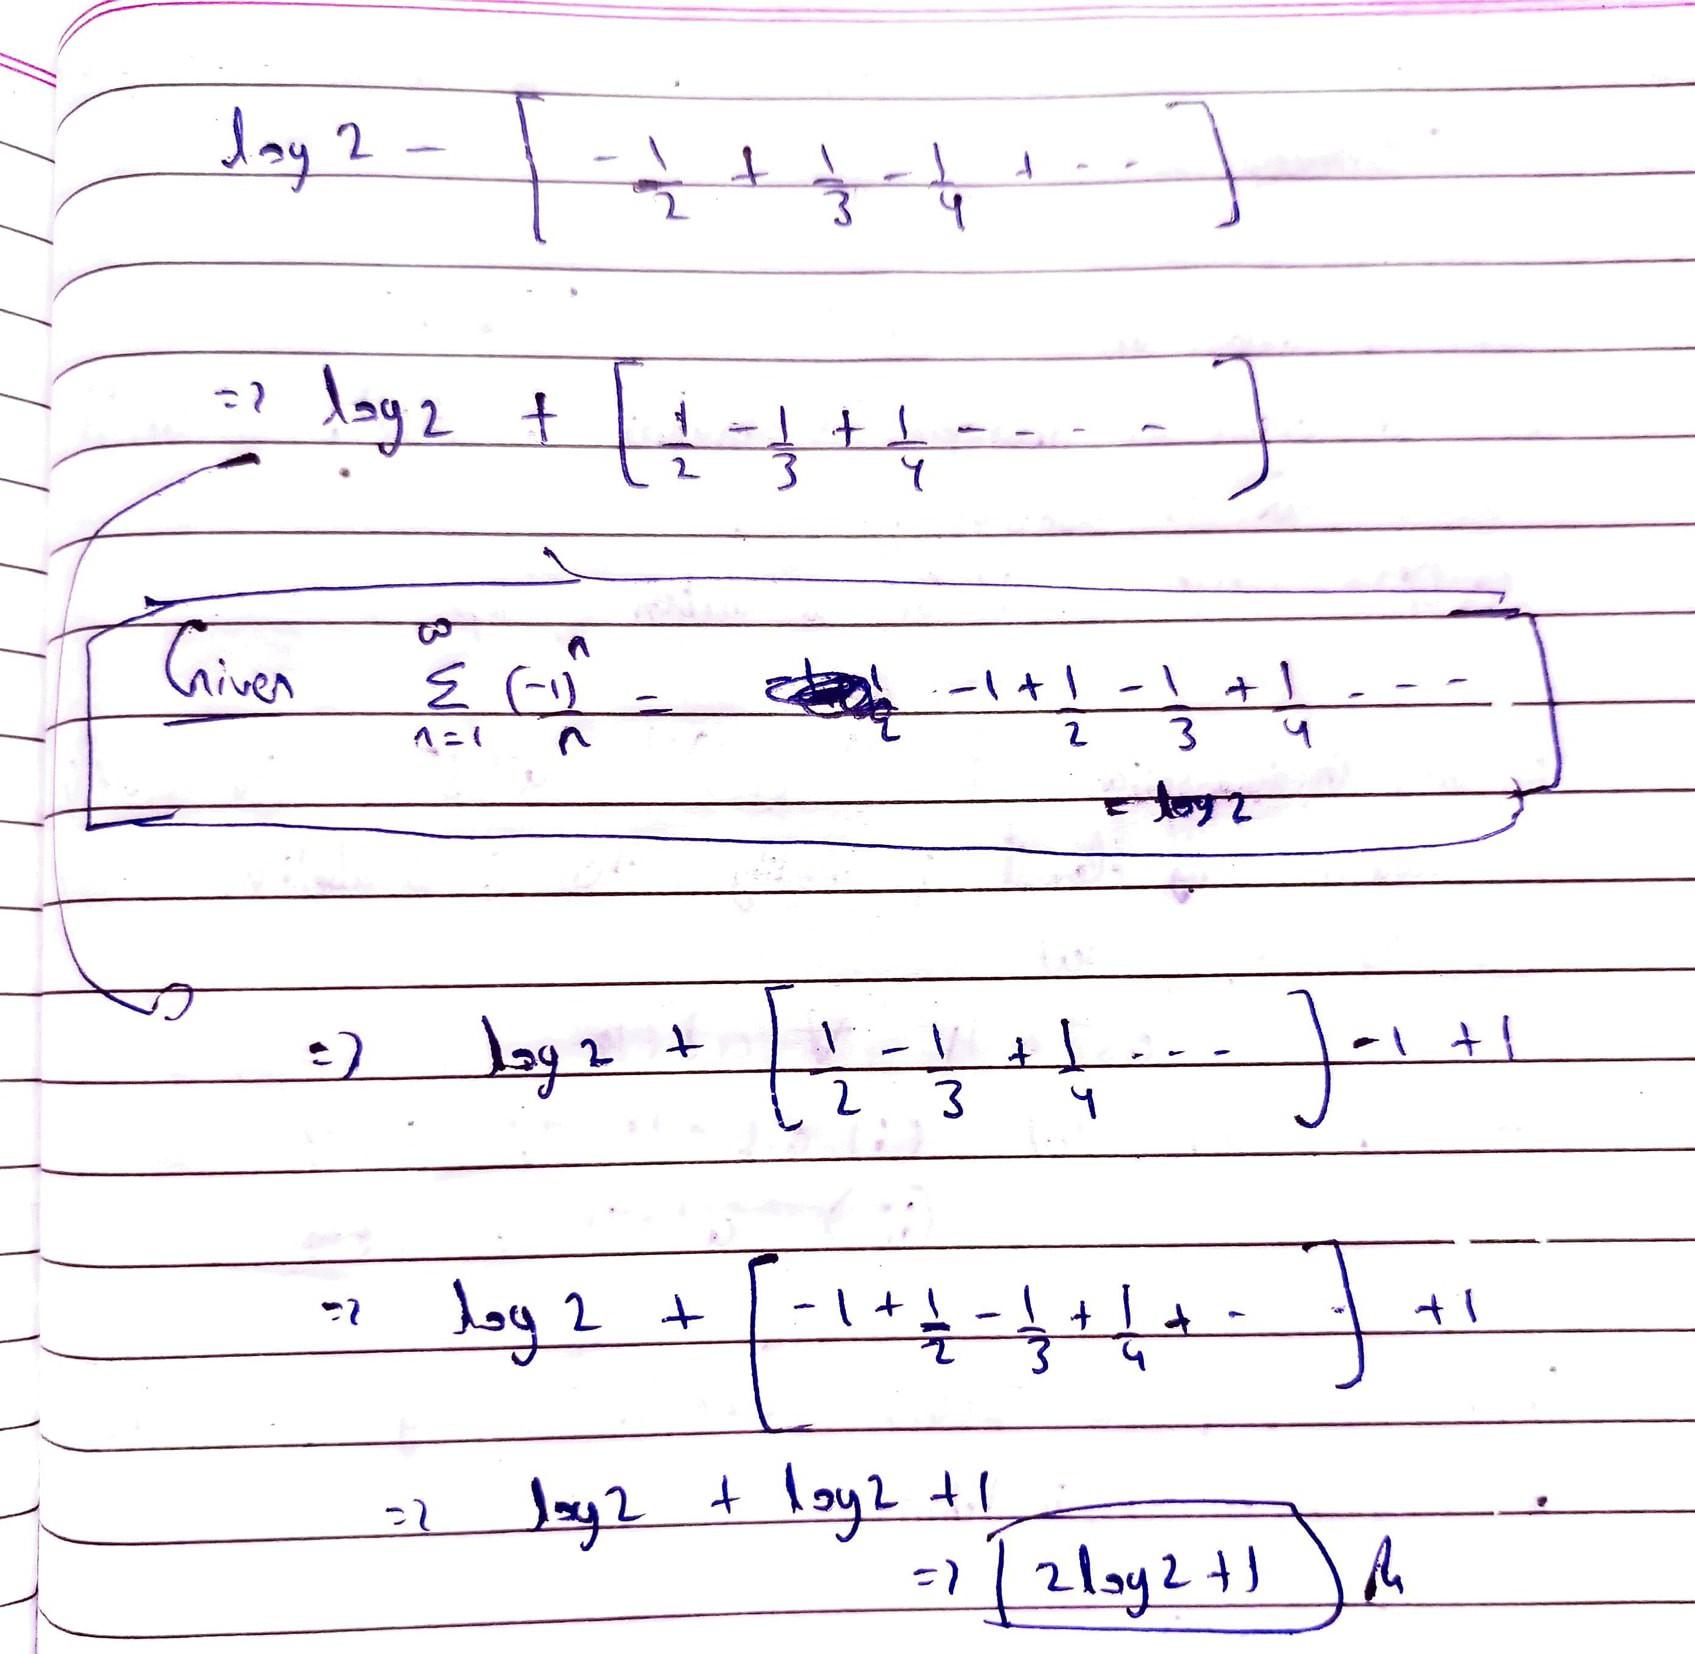 log 2 - [ - 1/2 + 1/3 - 1/4 + ... ]
=> log 2 + [ 1/2 - 1/3 + 1/4 - - - - - ]
Given ∞ Σ n=1 (-1)^n / n = -1 + 1/2 - 1/3 + 1/4 - - - -
= log 2
=> log 2 + [ 1/2 - 1/3 + 1/4 - - - ] - 1 + 1
=> log 2 + [ -1 + 1/2 - 1/3 + 1/4 + - - ] + 1
=> log 2 + log 2 + 1
=> 2 log 2 + 1